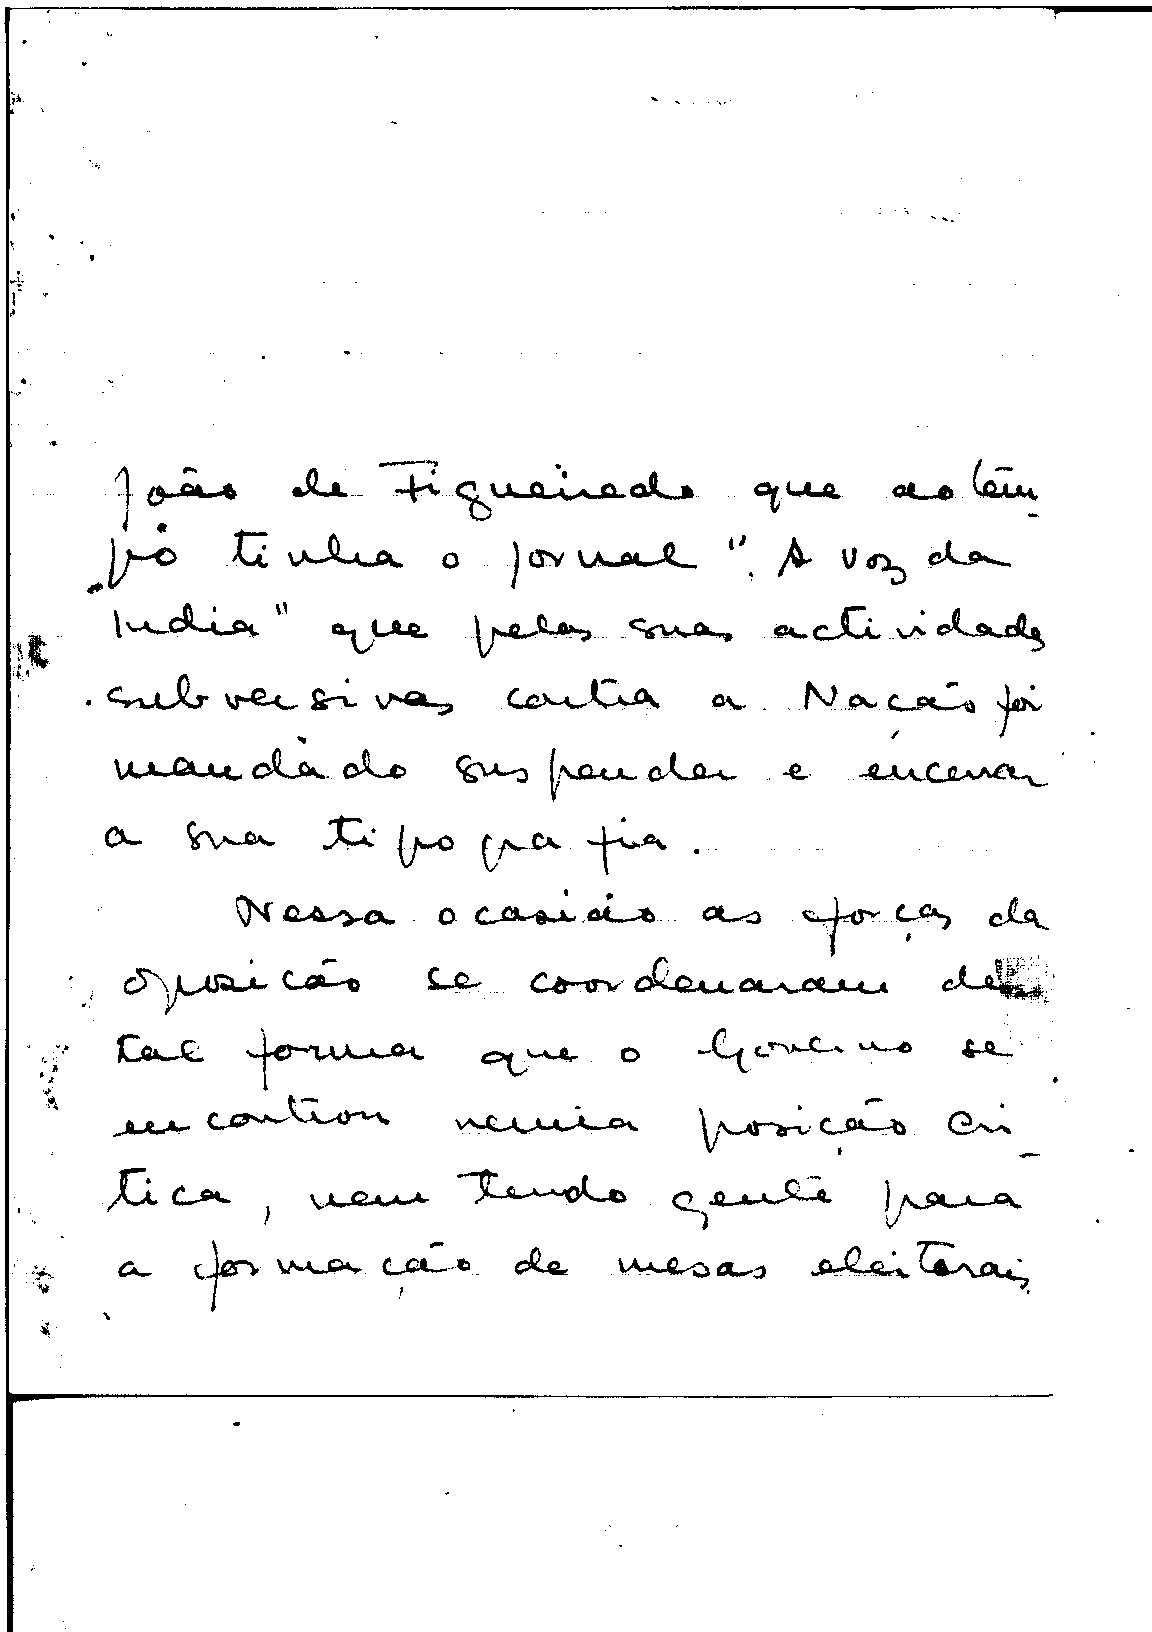 João de Figueiredo que ao têm-
pò tinha o jornal "A voz da
India" que pelas suas actividades
subversivas contra a Nação foi
mandado suspender e encerrar
a sua tipografia.
Nessa ocasião as forças da
oposicão se coordenaram de
tal forma que o Governo se
encontrou numa posição cri-
tica, nem tendo gente para
a formação de mesas eleitorais